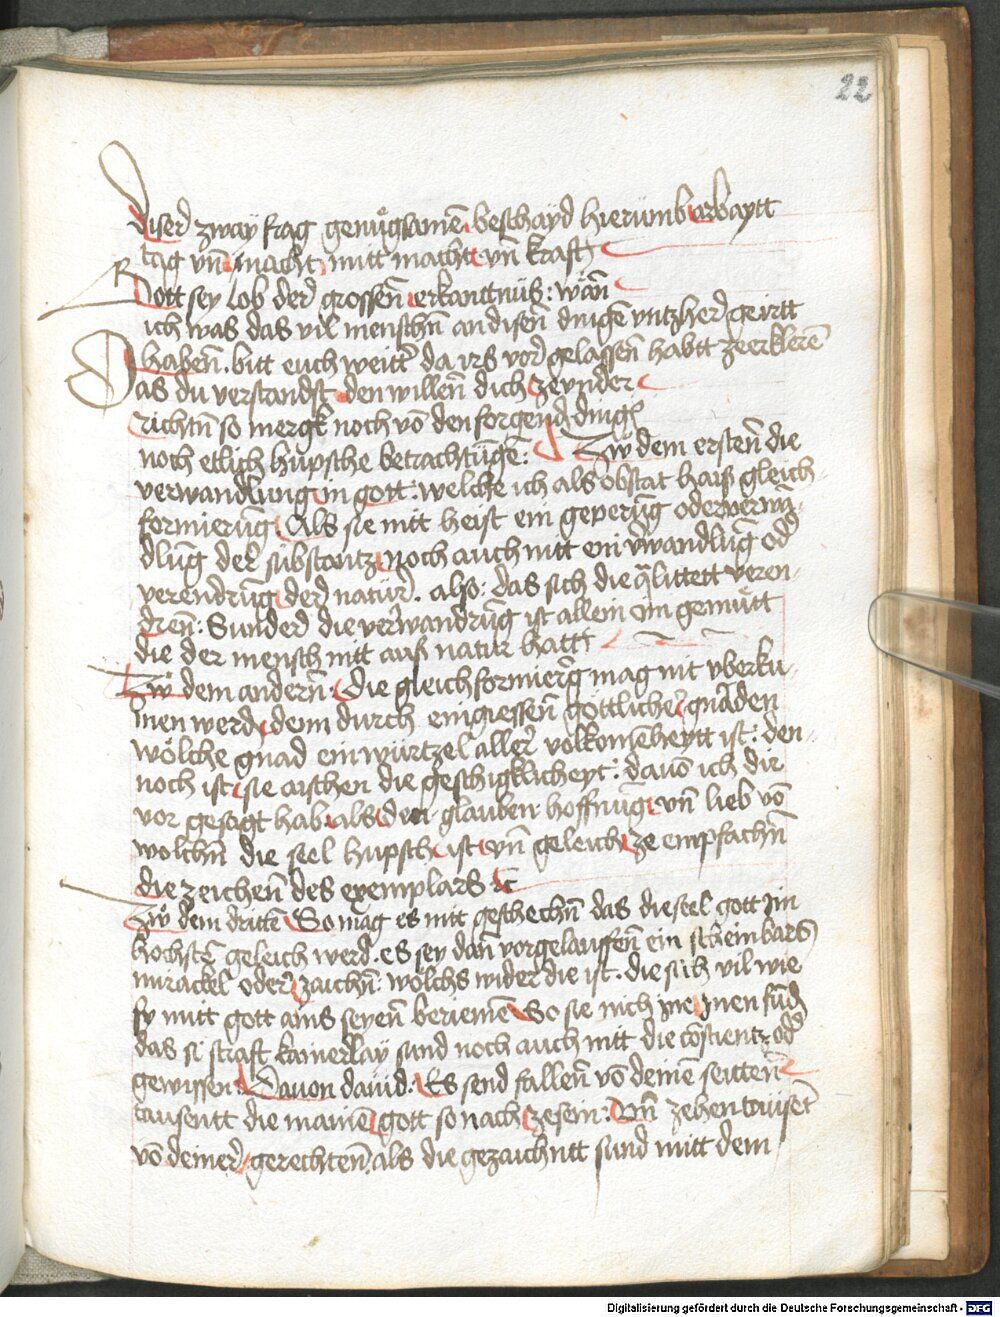 22
diser zway frag genuͦgsamen beschayd hierumb arbaytt
tag vnd macht, mitt macht vn̄ krafft
Gott sey lob der grossen̄ erkanttnüs: wān
ich was das vil menschn̄ an disen̄ dingē vntzher geirtt
haben̄. bitt euch weitt̄ da irs vor gelassen̄ habtt zeerklerē
Das du verstandst den willen̄ dich zeynder
richtn̄ so mergk noch vō den forgend dingē
noch etlich hüpsche betrachtūgē: Zuͦ dem ersten̄ die
verwandlung in gott. welche ich als obstat haiß gleich
formierūg. Als sie nit heist ein geperūg oder verwā
dlūg der substantz Noch auch nitt ein v̄wandlūg od̄
verendrūg der natur. also: das sich die q̄littett veren
dren̄: Sunder die verwandrūg ist allein im gemuͤtt
die der mensch nitt auß natur hatt
Zuͦ dem andern̄: Die gleichformierūg mag nit vberku
men werdn̄ denn durch eingiessen̄ göttlicher gnāden
wölche gnad ein würtzel aller volkomēheytt ist: den
noch ist sie aischen die geschigklicheyt: dauō ich dir
vor gesagt hab als den glauben hoffnūg vn̄ lieb vō
wölchn̄ die seel hüpsch ist vn̄ geleich ze empfachn̄
die zeichen̄ des exemplars ꝛc
Zuͦ dem drittē So mag es nit geschechn̄ das die seel gott im
höchstē geleich werd. es sey dan̄ vorgelauffen̄ ein scheinbars
mirackel oder zaichn̄: wölchs wider die ist. die sich vil wie
sy mitt gott ains seyen̄ beriemē So sie nich jne jnen fūd
das si strafft kainerlay sund noch auch nitt die cōscientz od̄
gewissen. Dauon dauid: Es send fallen̄ vō deinē seitten̄
tausentt die mainē gott so nach zesein: Vn̄ zehen tauset̄
vō deiner gerechten̄ als die gezaichntt sund mitt dem
Digitalisierung gefördert durch die Deutsche Forschungsgemeinschaft - DFG